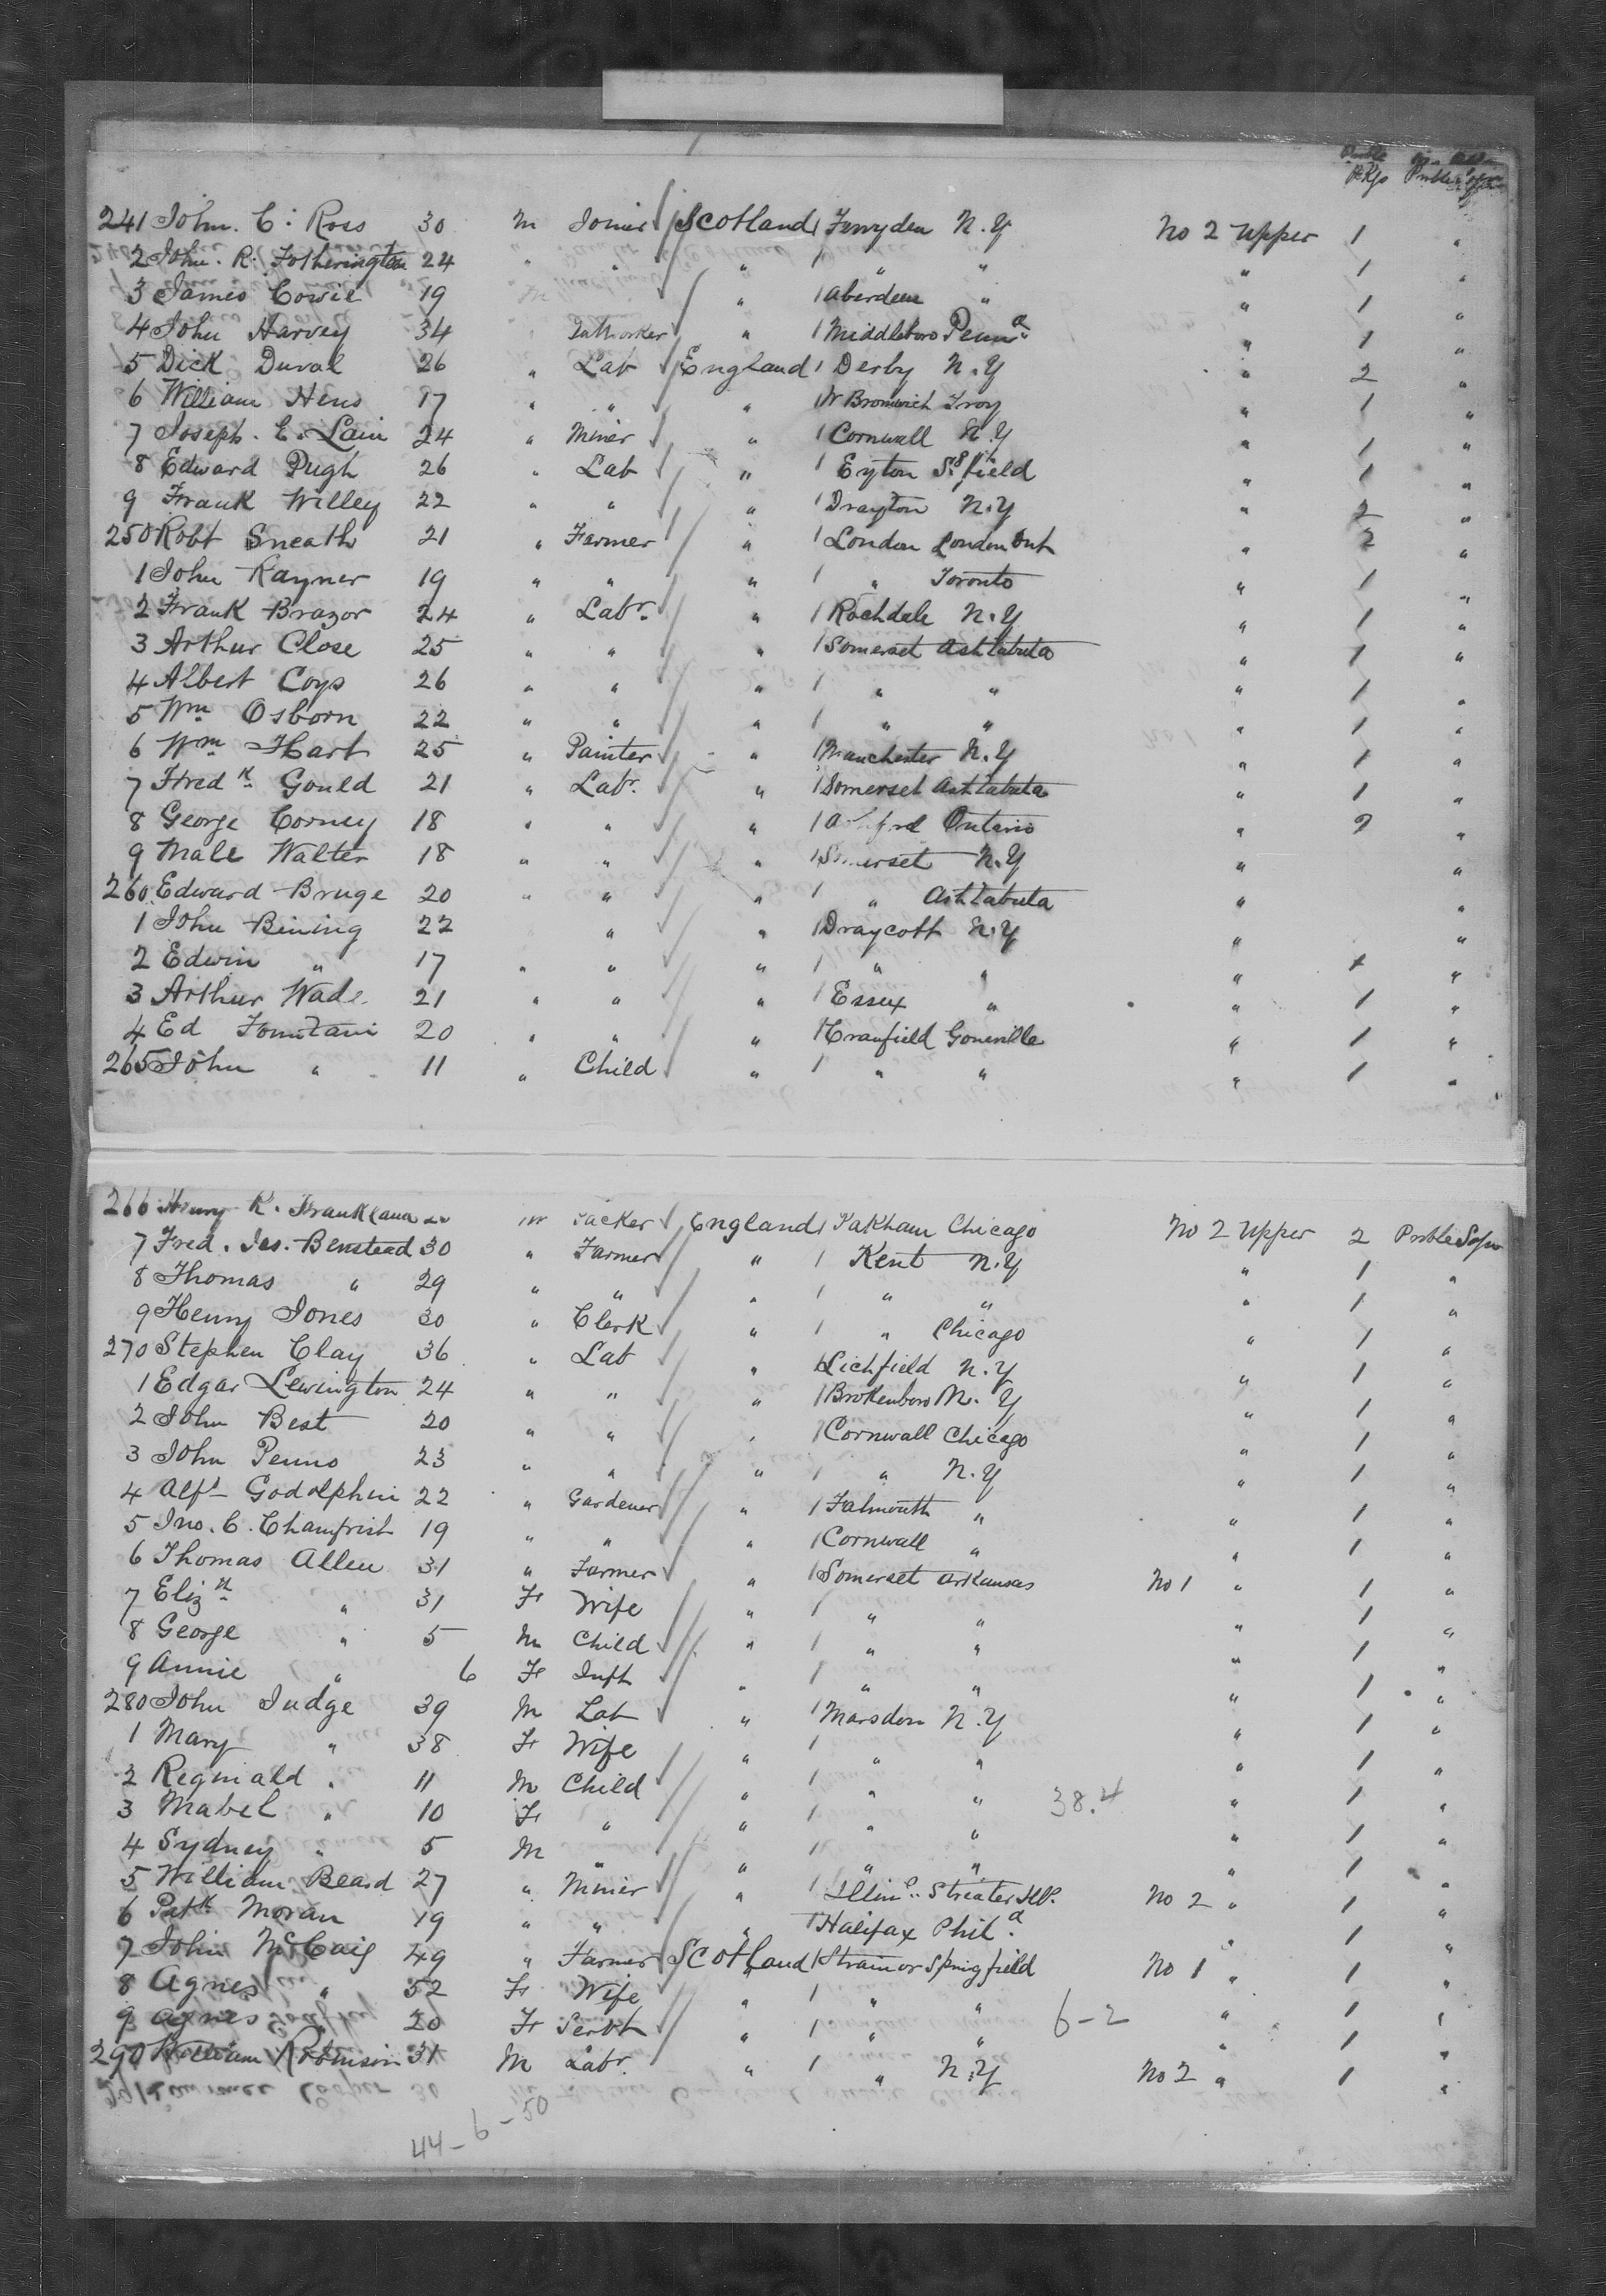 Pkgs Proble
241 John. C. Ross 30 m Joiner / Scotland 1 Ferryden N.Y No 2 Upper 1 "
2 John. R. Fotherington 24 " " " 1 " " " 1 "
3 James Cowie 19 " 1 Aberdeen " " 1 "
4 John Harvey 34 " 1 Middleboro Penna " 1 "
5 Dick Duval 26 " Lab / England 1 Derby N.Y " 2 "
6 William Hens 17 " " " 1 W Bromwich Troy " 1 "
7 Joseph. E. Lain 24 " Miner " 1 Cornwall N.Y " 1 "
8 Edward Pugh 26 " Lab " 1 Eyton Spgfield " 1 "
9 Frank Willey 22 " " " 1 Drayton N.Y " 2 "
250 Robt Sneath 21 " Farmer " 1 London London Ont " 2 "
1 John Rayner 19 " " " 1 " Toronto " 1 "
2 Frank Brazor 24 " Labr. " 1 Rochdale N.Y " 1 "
3 Arthur Close 25 " " " 1 Somerset Ashtabula " 1 "
4 Albert Coys 26 " " " 1 " " " 1 "
5 Wm Osborn 22 " " " 1 " " " 1 "
6 Wm Hart 25 " Painter " 1 Manchester N.Y " 1 "
7 Fredk Gould 21 " Labr. " 1 Somerset Ashtabula " 1 "
8 George Corney 18 " " " 1 Ontario " 2 "
9 Male Walter 18 " " " 1 Somerset N.Y " "
260 Edward Bruge 20 " " " 1 " Ashtabula " "
1 John Bining 22 " " 1 Draycott N.Y " "
2 Edwin " 17 " " " 1 " " " 1 "
3 Arthur Wade 21 " " " 1 Essex " " 1 "
4 Ed Fountain 20 " " " 1 Cranfield " 1 "
265 John " 11 " Child " 1 " " " 1 "
266 Henry K. Frankland m Packer England 1 Pakham Chicago No 2 Upper 2 Proble Sojn
7 Fred. Jas. Benstead 30 " Farmer " 1 Kent N.Y " 1 "
8 Thomas " 29 " " " 1 " " " 1 "
9 Henry Jones 30 " Clerk " 1 " Chicago " 1 "
270 Stephen Clay 36 " Lab " 1 Lichfield N.Y " 1 "
1 Edgar Lewington 24 " " " 1 Brokenboro N.Y " 1 "
2 John Best 20 " " " 1 Cornwall Chicago " 1 "
3 John Penno 23 " " " 1 " N.Y " 1 "
4 Alfd Godolphin 22 " Gardener " 1 Falmouth " " 1 "
5 Jno. C. Champrish 19 " " " 1 Cornwall " " 1 "
6 Thomas Allen 31 " Farmer " 1 Somerset Arkansas No 1 " 1 "
7 Elizth " 31 F Wife " 1 " " " 1 "
8 George " 5 M Child " 1 " " " 1 "
9 Annie " 6 F Inft " 1 " " " 1 "
280 John Judge 39 M Lab " 1 Marsden N.Y " 1 "
1 Mary " 38 F Wife " 1 " " " 1 "
2 Reginald " 11 M Child " 1 " " 38.4 " 1 "
3 Mabel " 10 F " " 1 " " " 1 "
4 Sydney " 5 M " " 1 " " " 1 "
5 William Beard 27 " Miner " 1 Streater Ill. No 2 " 1 "
6 Patk Moran 19 " " " 1 Halifax Phila. " 1 "
7 John McCaig 49 " Farmer Scotland 1 Stranraer Springfield No 1 " 1 "
8 Agnes " 52 F Wife " 1 " " 6-2 " 1 "
9 Agnes 20 F Servt " 1 " " " 1 "
290 William Robinson 31 M Labr. " 1 " N.Y No 2 " 1 "
44-6-50